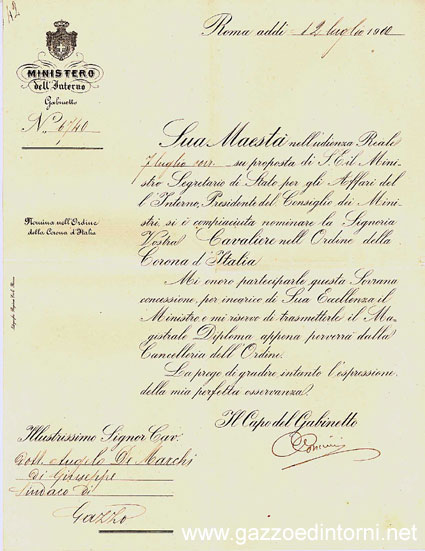 142
Roma addì 12 luglio 1900
MINISTERO
dell'Interno
Gabinetto
N.° 6740
Nomina nell'Ordine
della Corona d'Italia
Sua Maestà nell'udienza Reale
7 luglio corr. su proposta di S.E. il Mini-
stro Segretario di Stato per gli Affari del-
l'Interno, Presidente del Consiglio dei Mini-
stri, si è compiaciuta nominare la Signoria
Vostra Cavaliere nell'Ordine della
Corona d'Italia
Mi onoro parteciparle questa Sovrana
concessione, per incarico di Sua Eccellenza il
Ministro e mi riservo di trasmetterle il Ma-
gistrale Diploma appena perverrà dalla
Cancelleria dell'Ordine.
La prego di gradire intanto l'espressione
della mia perfetta osservanza.
Il Capo del Gabinetto
Illustrissimo Signor Cav.
Dott. Angelo De Marchi
di Giuseppe
Sindaco di
Gazzo
© www.gazzoedintorni.net